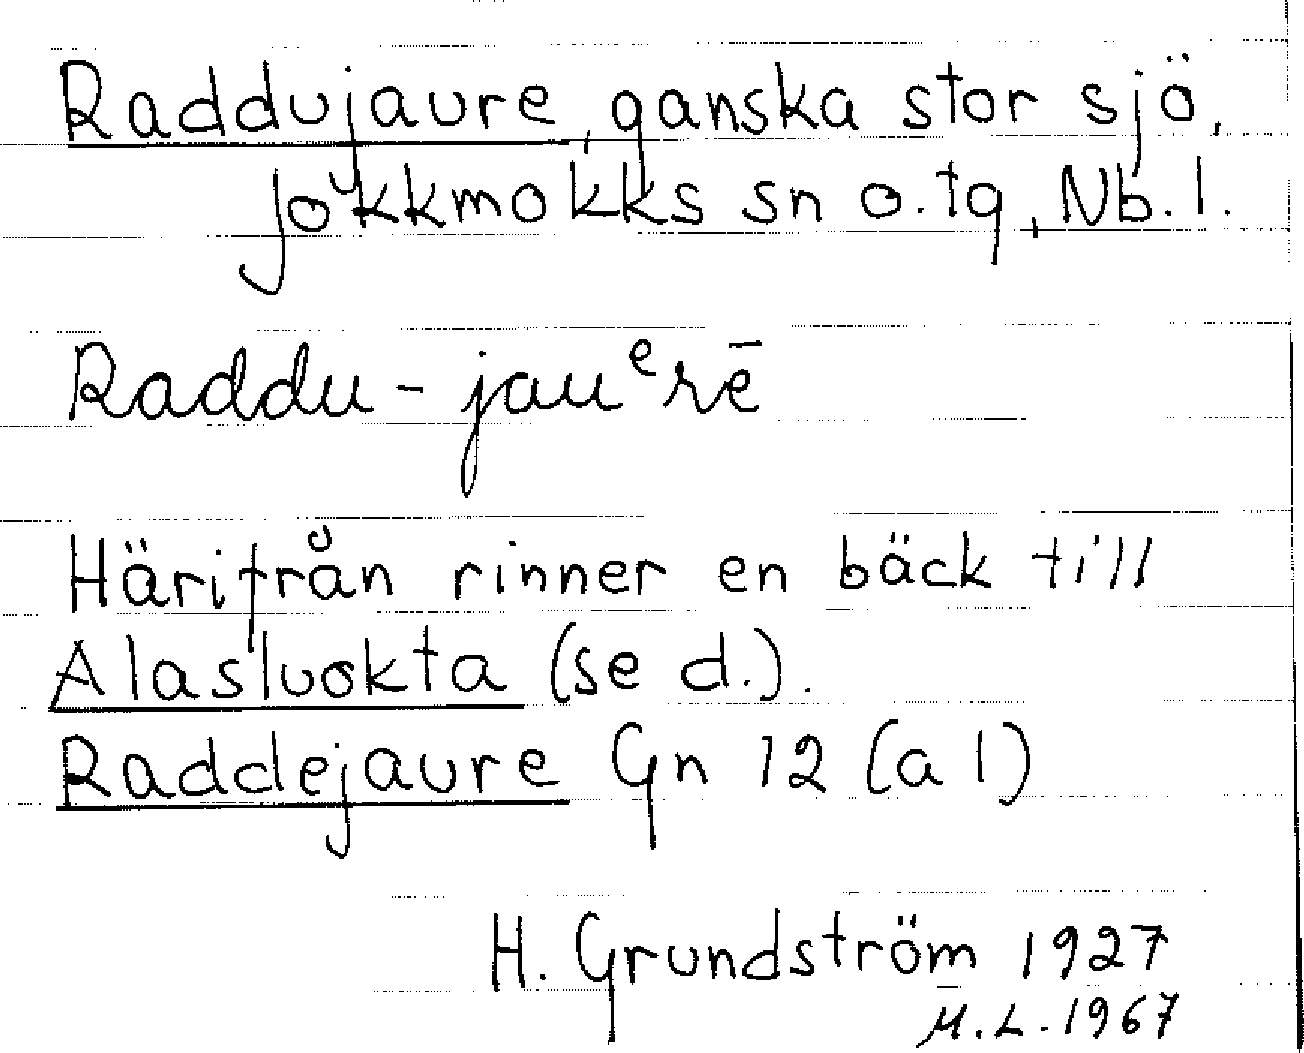 Raddujaure, ganska stor sjö,
Jokkmokks sn o. tg, Nb. l.
Raddu-jauᵉrē
Härifrån rinner en bäck till
Alasluokta (se d.).
Raddejaure Gn 12 (a 1)
H. Grundström 1927
M.L. 1967